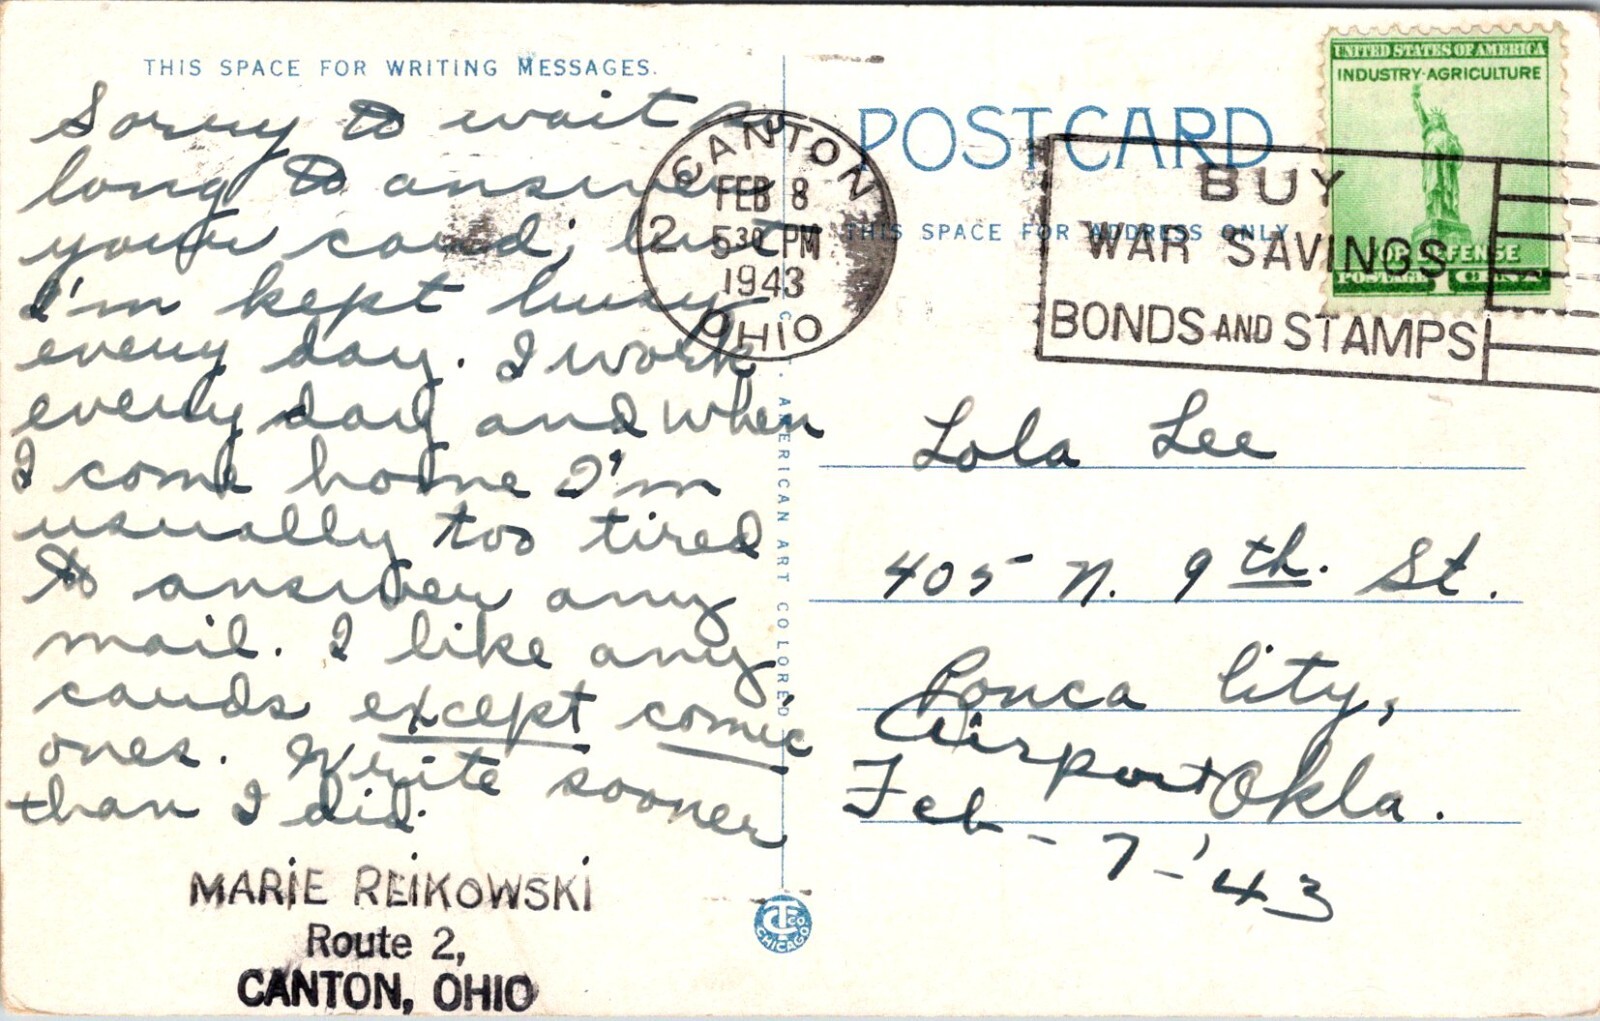 THIS SPACE FOR WRITING MESSAGES.
Sorry to wait so
long to answer
your card; but
I'm kept busy
every day. I work
every day and when
I come home I'm
usually too tired
to answer any
mail. I like any
cards except comic
ones. Write sooner
than I did.
MARIE REIKOWSKI
Route 2,
CANTON, OHIO
C. T. AMERICAN ART COLORED
CT CO. CHICAGO
CANTON
FEB 8
2 530 PM
1943
OHIO
POST CARD
THIS SPACE FOR ADDRESS ONLY
BUY
WAR SAVINGS
BONDS AND STAMPS
UNITED STATES OF AMERICA
INDUSTRY·AGRICULTURE
FOR DEFENSE
POSTAGE 1 CENT
Lola Lee
405 N. 9th. St.
Ponca City,
Airport Okla.
Feb-7-'43